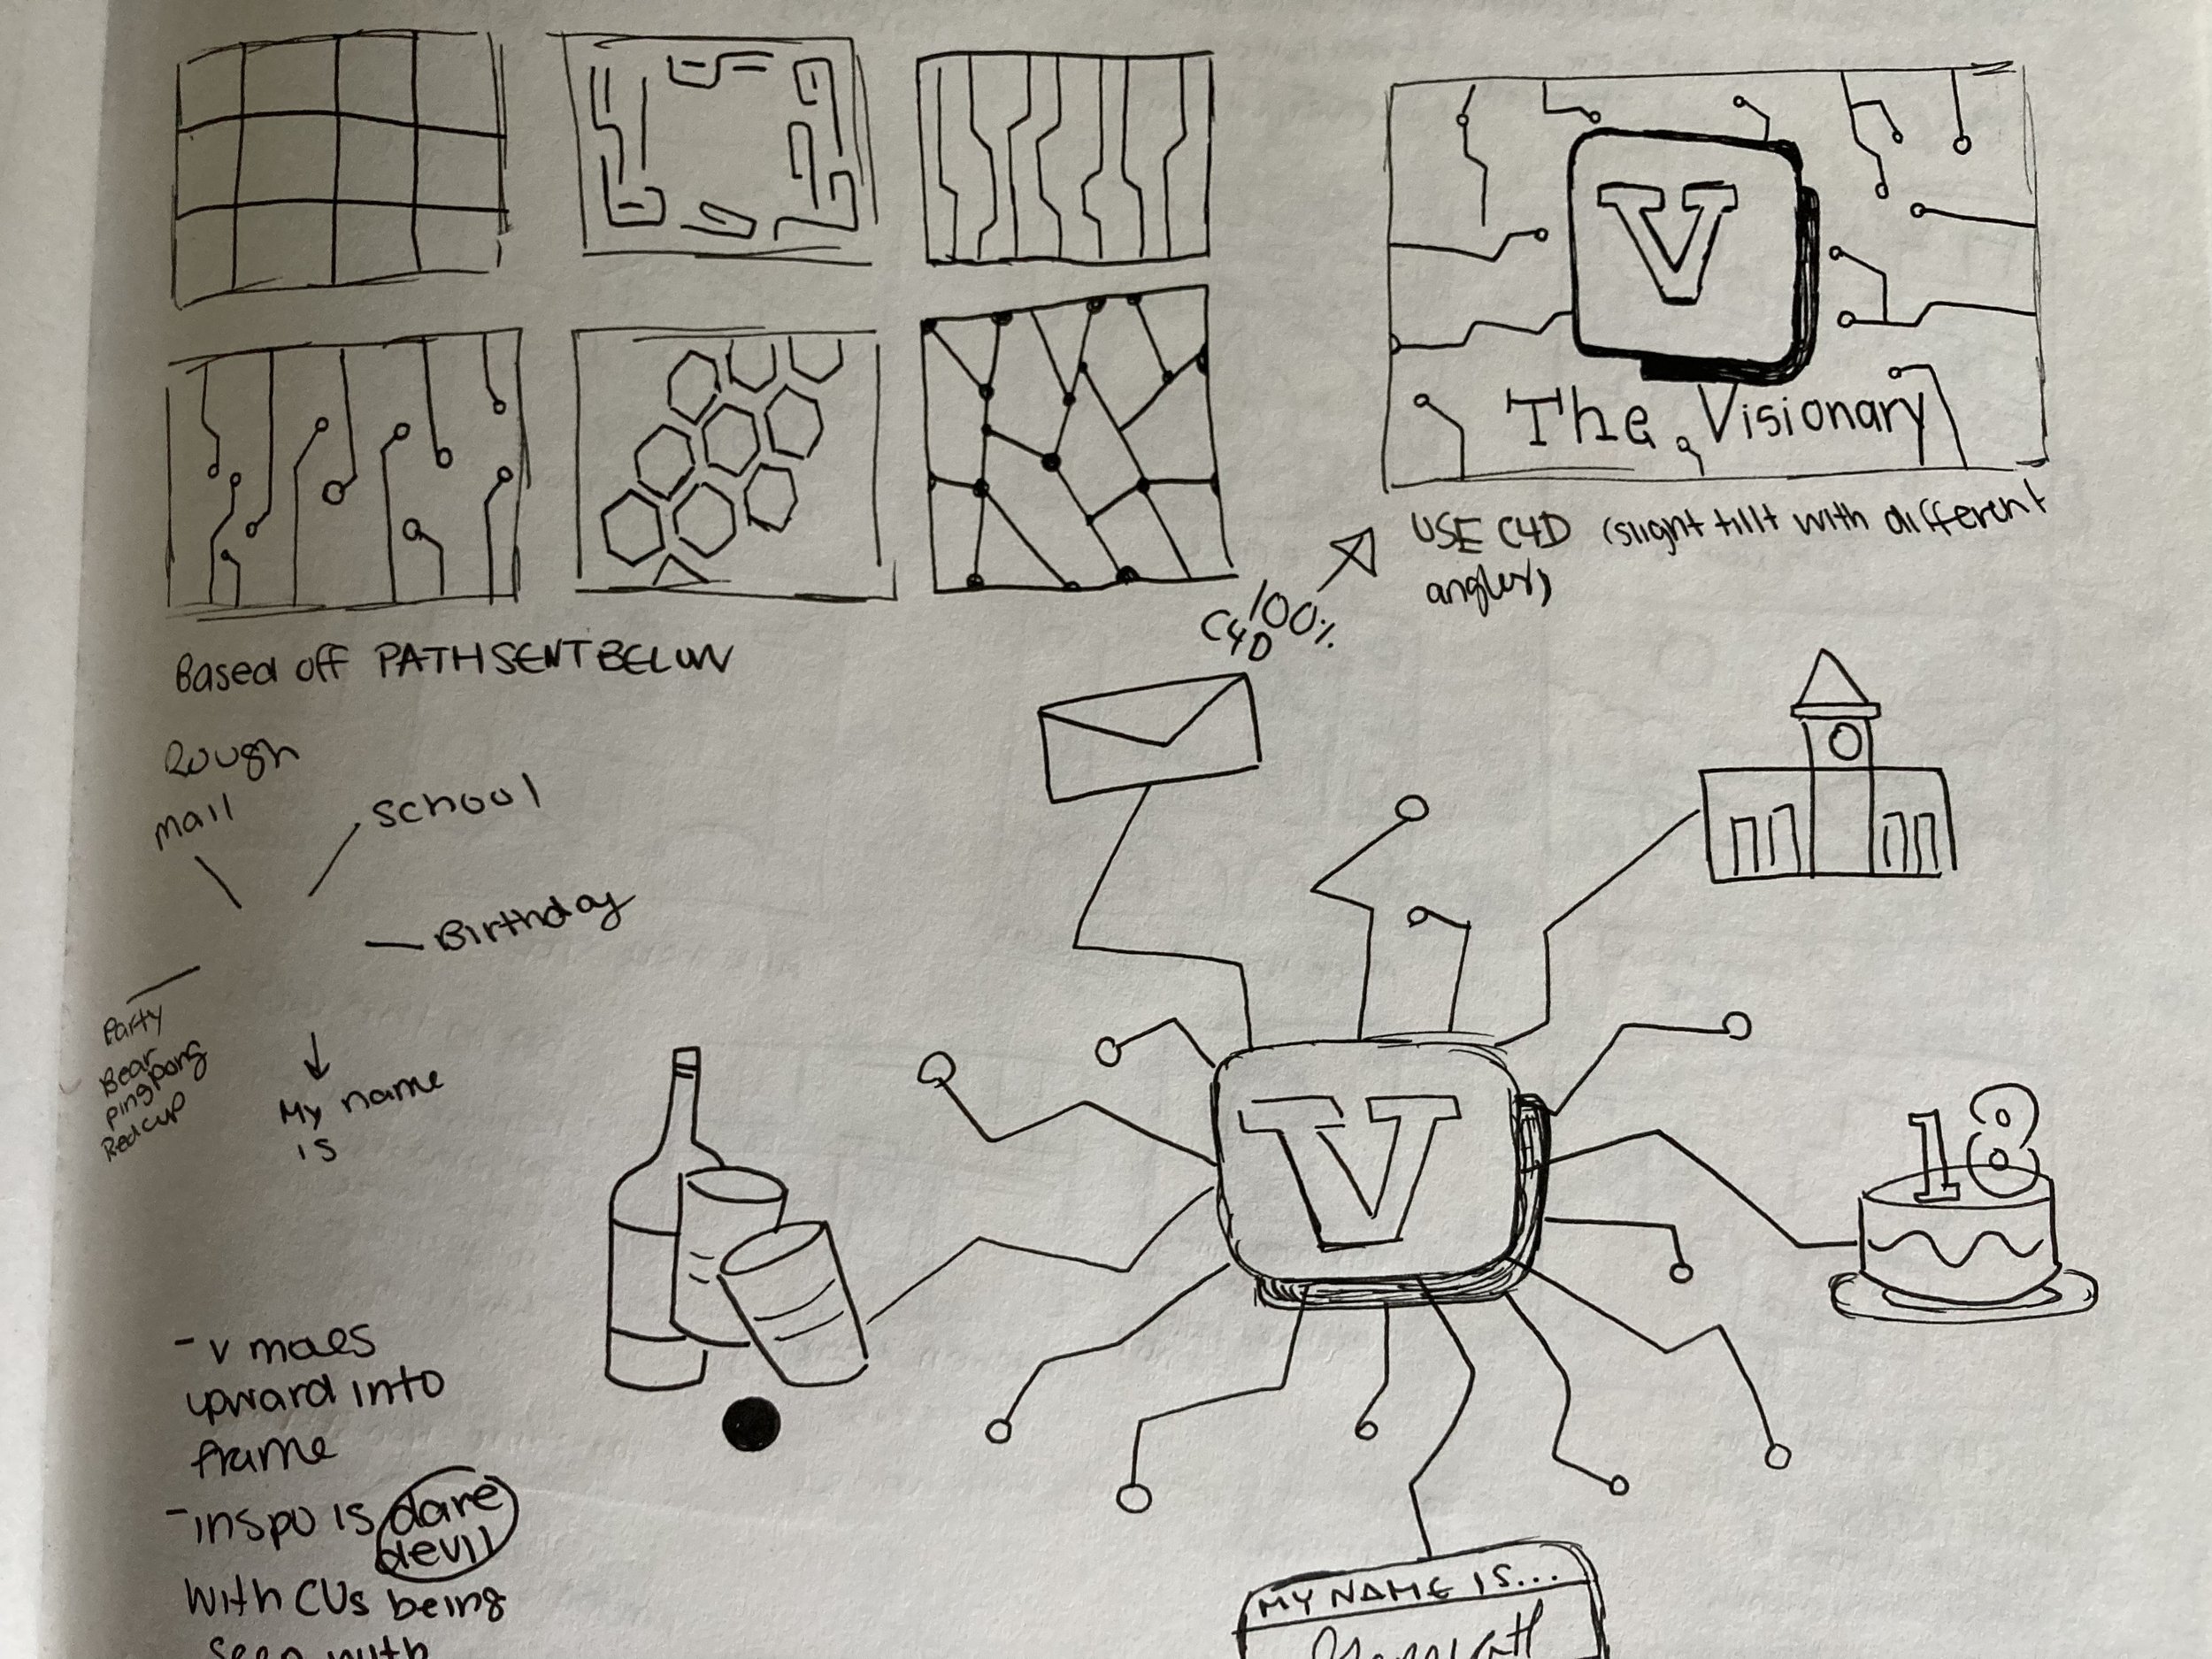 V
The Visionary
USE C4D (slight tillt with different
angles)
100%
C4D
Based off PATH SENT BELOW
Rough
mail
school
Birthday
Party
Bear
pingpong
Redcup
My name
is
V
18
- V moes
upward into
frame
- inspo is dare
devil
with CUs being
seen with
MY NAME IS...